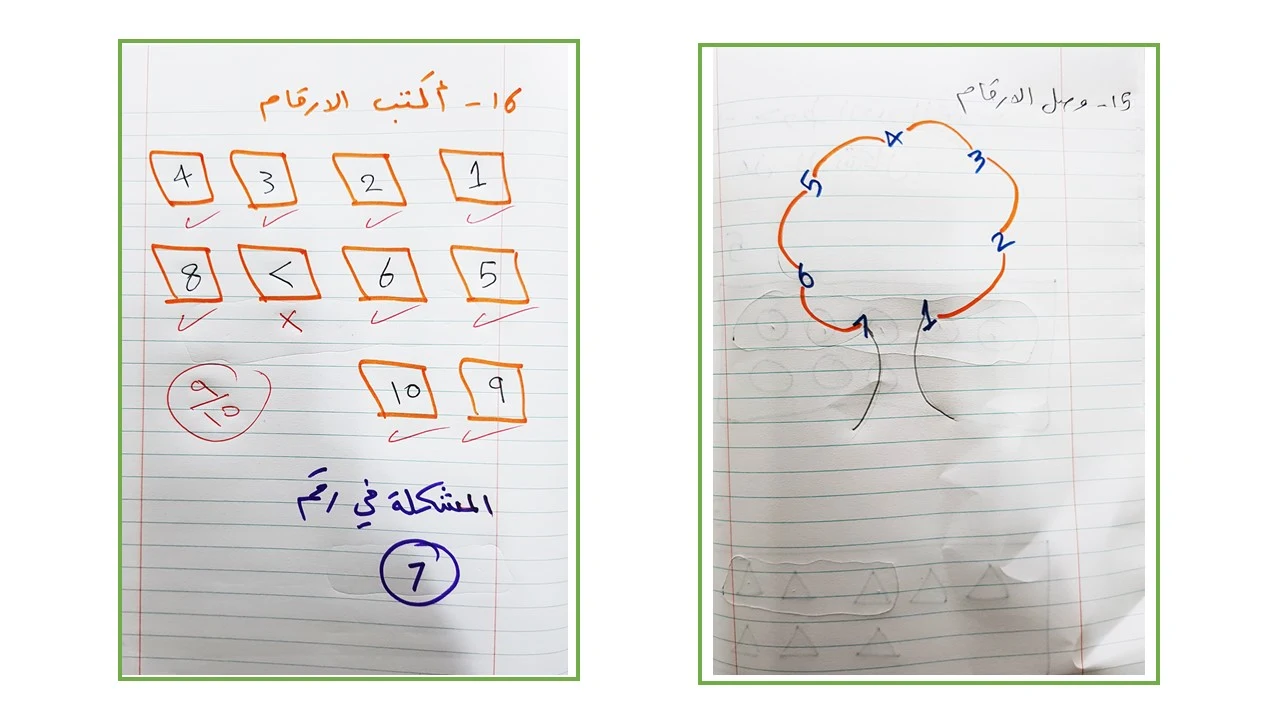 15- وصل الارقام
4
3
5
2
6
7 1
16- أكتب الارقام
1 2 3 4
5 6 < 8
9 10
9/10
المشكلة في رقم
7